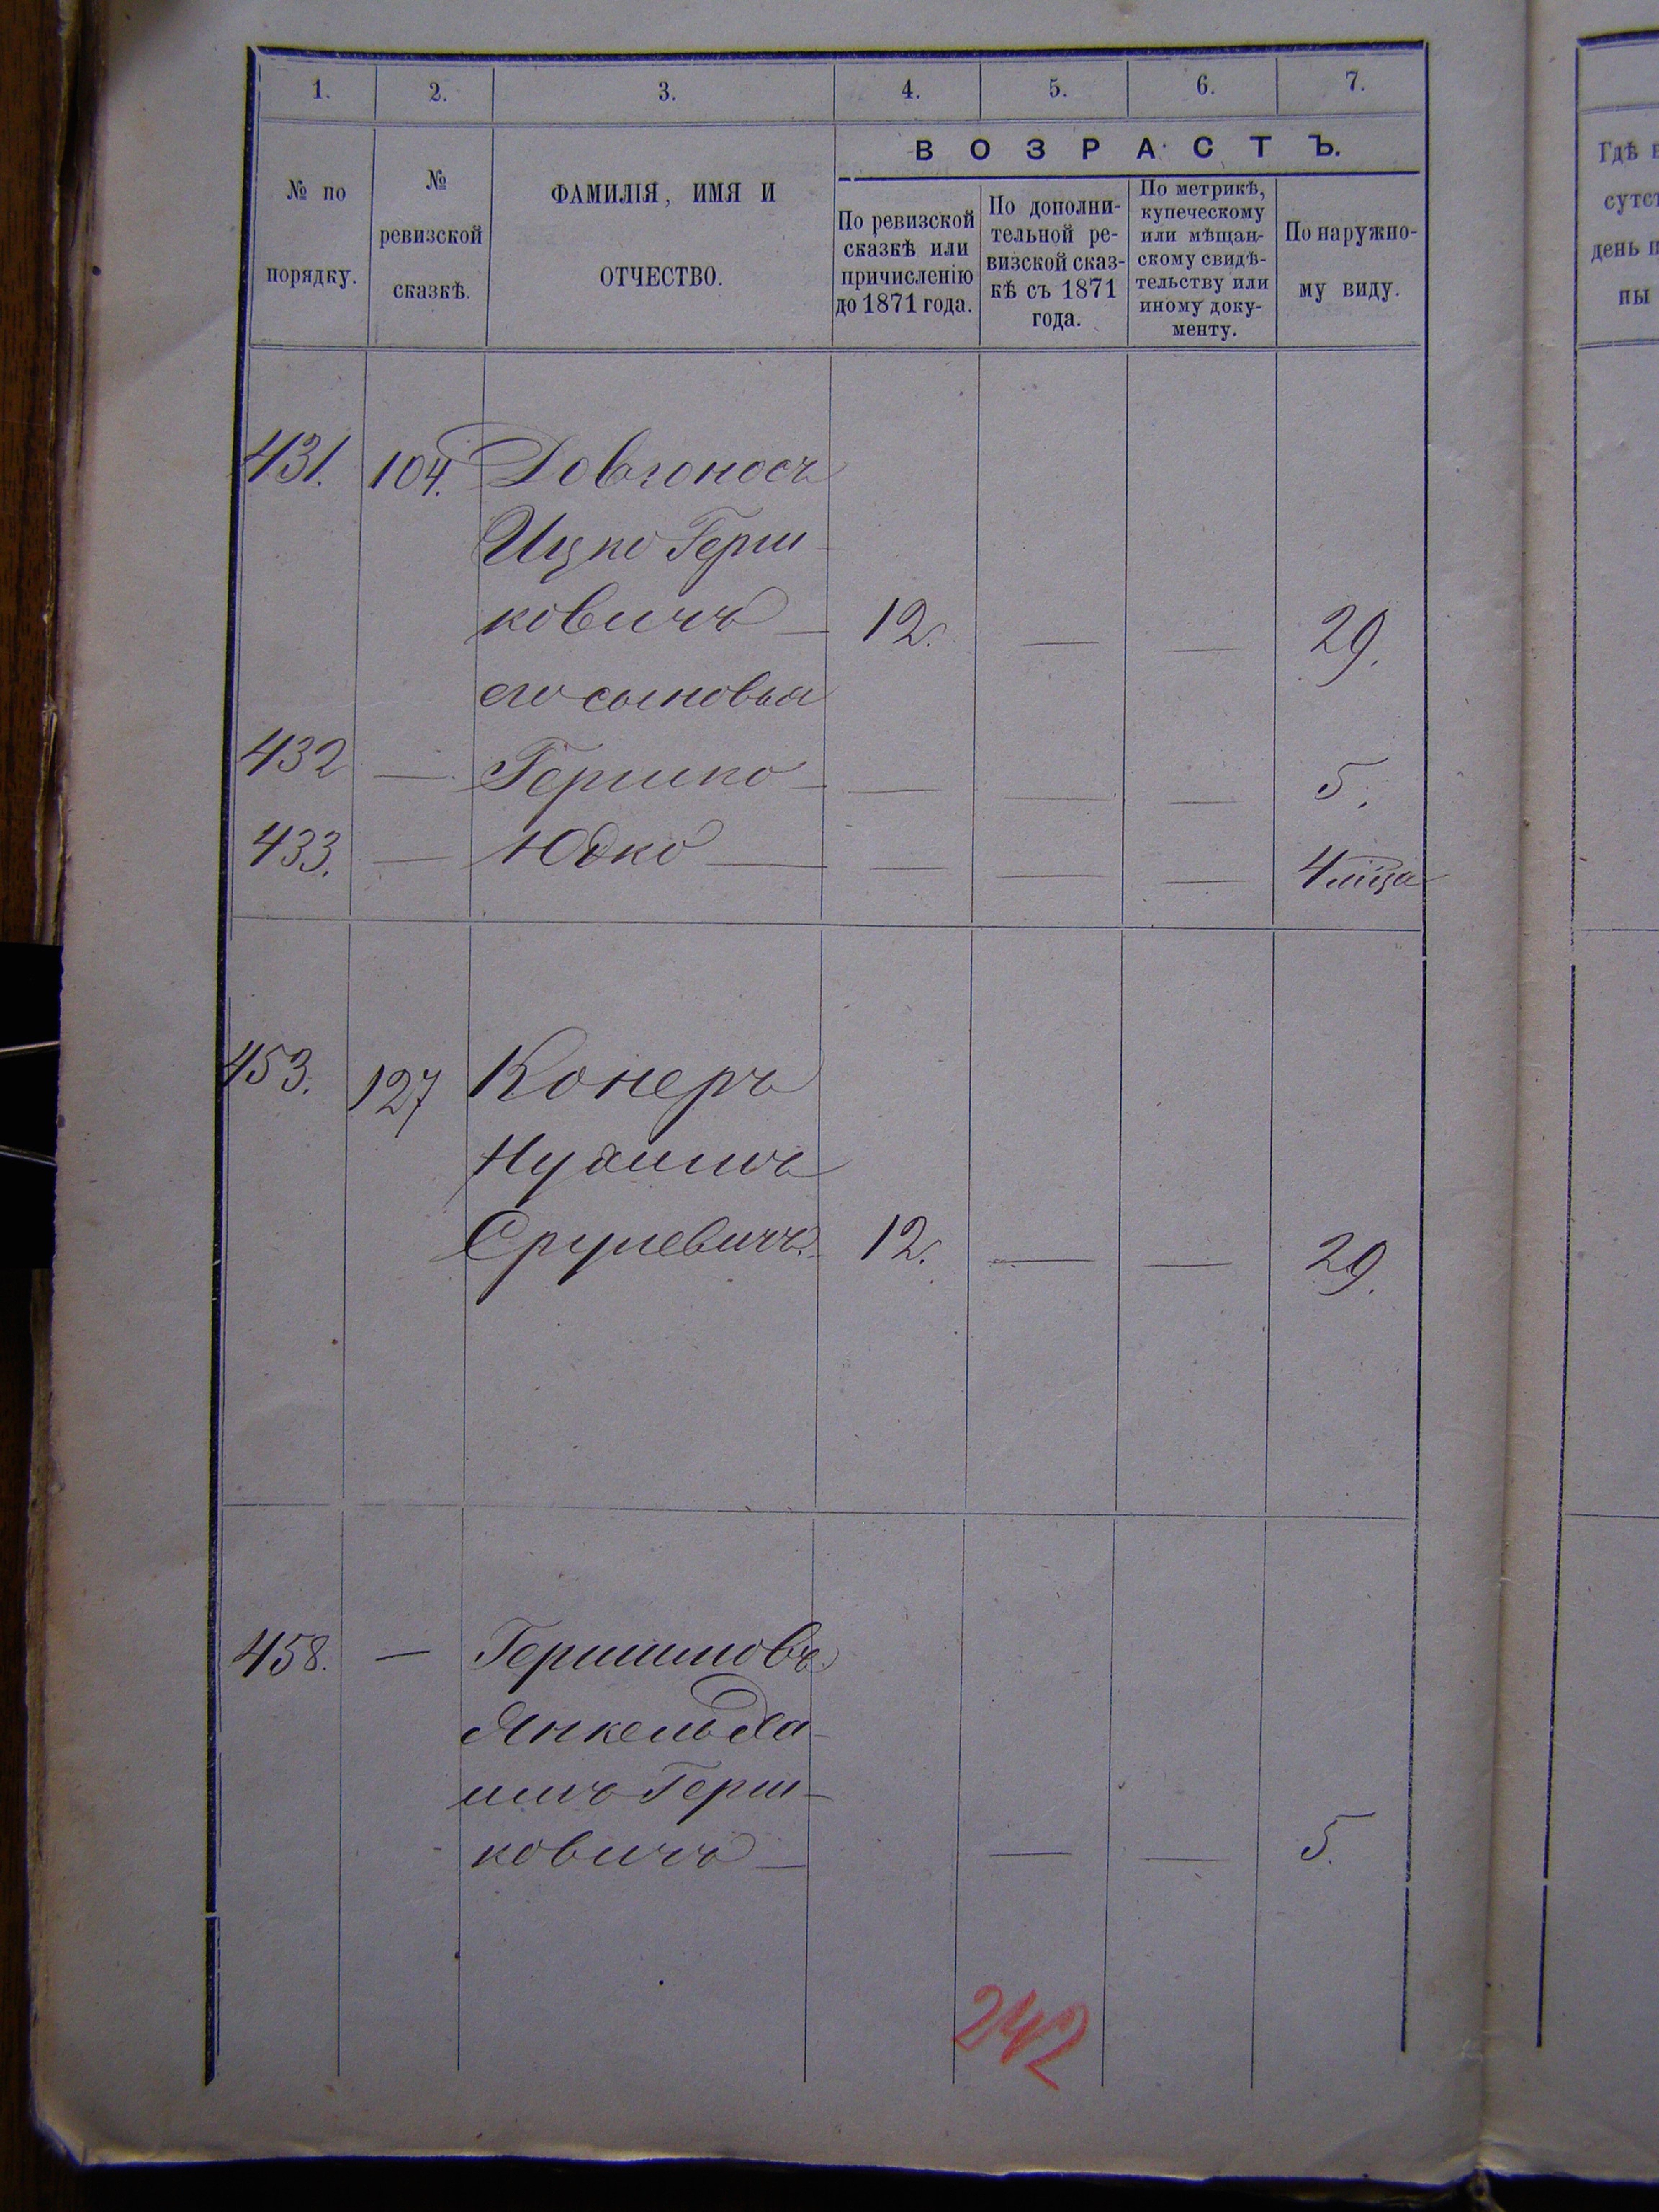 1. 2. 3. 4. 5. 6. 7.
№ по порядку.
№ ревизской сказкѣ.
ФАМИЛІЯ, ИМЯ И ОТЧЕСТВО.
ВОЗРАСТЪ.
По ревизской
сказкѣ или
причисленію
до 1871 года.
По дополни-
тельной ре-
визской сказ-
кѣ съ 1871
года.
По метрикѣ,
купеческому
или мѣщан-
скому свидѣ-
тельству или
иному доку-
менту.
По наружно-
му виду.
Гдѣ
сутст
день
ны
431. 104. Довгоносъ
Ицко Герш-
ковичъ — 12. — — 29.
его сыновья
432 — Гершко — — — — 5.
433. — Юдко — — — — 4 мѣца
453. 127 Конеръ
Нухимъ
Срулевичъ. 12. — — 29.
458. — Гершковъ
Янкель Ха-
имъ Герш-
ковичъ — — — 5.
242